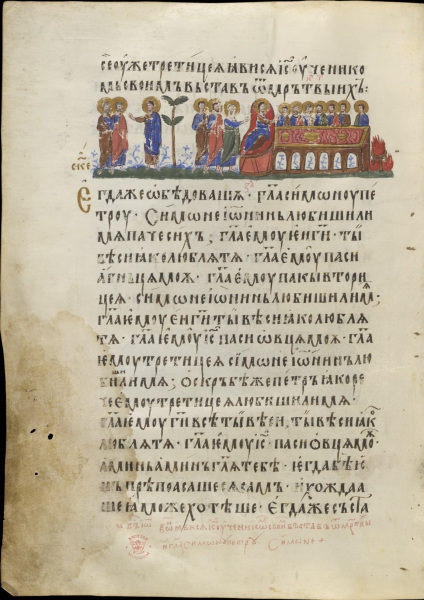 се оуже третицеꙗ ꙗвисѧ і҃с оученико
мь своимъ въставь ѿ мрътвыихъ:
Егдаже ѡбѣдовашѧ · гл҃а симѡноу пе
троу · Симѡне іѡнинь любиши ли
мѧ паче сихъ ; гл҃а емоу еи ги҃ · ты
вѣси ꙗко люблю тѧ · гл҃а емоу паси
агньцѧ моѧ · гл҃а емоу пакы втори
цеѧ · симѡне іѡнинь любиши ли мѧ ;
гл҃а емоу еи ги҃ ты вѣси ꙗко люблю
тѧ · гл҃а емоу і҃с паси ѡвцѧ моѧ · гл҃а
емоу третицеѧ сімѡне іѡнинь лю
биши ли мѧ ; оскръбѣ же петръ ꙗко ре
че емоу третицеѧ любиши ли мѧ ·
гл҃а емоу ги҃ всѣ ты вѣси , ты вѣси ꙗко
люблю тѧ · гл҃а емоу і҃с · паси ѡвцѧ моѧ ·
аминь аминь гл҃ѧ тебѣ · егда бѣ ю
нъ прѣпоасаше сѧ самъ · и хождда
ше аможе хотѣше · Егдаже съста